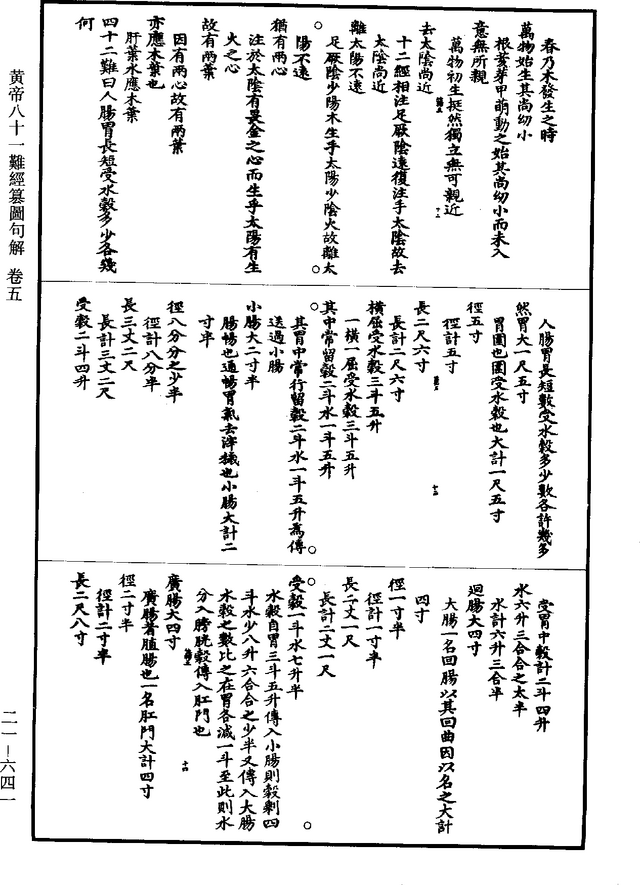 春乃木發生之時
萬物始生其尚幼小
根荄芽甲萌動之始其尚幼小而未入
意無所親
萬物初生挺然獨立無可親近
去太陰尚近
十二經相注足厥陰遠復注手太陰故去
太陰尚近
離太陽不遠
足厥陰少陽木生乎太陽少陰火故離太
陽不遠
猶有兩心
注於太陰有畏金之心而生乎太陽有生
火之心
故有兩葉
因有兩心故有兩葉
亦應木葉也
肝葉水應木葉
四十二難曰人腸胃長短受水穀多少各幾
何
人腸胃長短數受水穀多少數各許幾多
然胃大一尺五寸
胃圍也圍受水穀也大計一尺五寸
徑五寸
徑計五寸
長二尺六寸
長計二尺六寸
橫屈受水穀三斗五升
一橫一屈受水穀三斗五升
其中常留穀二斗水一斗五升
其胃中常行留穀二斗水一斗五升為傳
送過小腸
小腸大二寸半
腸暢也通暢胃氣去滓穢也小腸大計二
寸半
徑八分分之少半
徑計八分半
長三丈二尺
長計三丈二尺
受穀二斗四升
受胃中穀計二斗四升
水六升三合合之太半
水計六升三合半
迴腸大四寸
大腸一名回腸以其回曲因以名之大計
四寸
徑一寸半
徑計一寸半
長二丈一尺
長計二丈一尺
受穀一斗水七升半
水穀自胃三斗五升傳入小腸則穀剩四
斗水少八升六合合之少半又傳入大腸
水穀之數比之在胃各減一斗至此則水
分入膀胱穀傳入肛門也
廣腸大四寸
廣腸者䐈腸也一名肛門大計四寸
徑二寸半
徑計二寸半
長二尺八寸
黃帝八十一難經纂圖句解 卷五
二一－六四一